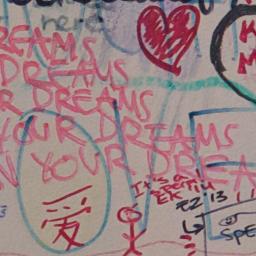 here
REAMS
DREAMS
R DREAMS
YOUR DREAMS
N YOUR DREA
It's a
EK
22 13
愛
SPE